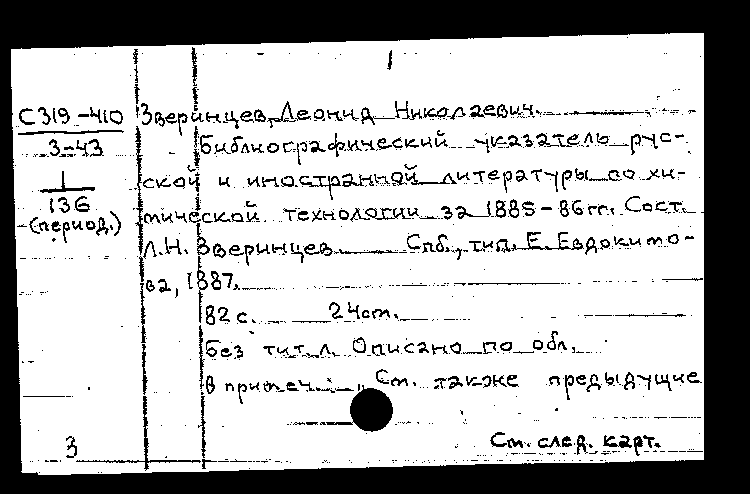 1
С319-410 Зверинцев, Леонид Николаевич.
3-43 Библиографический указатель рус-
1 ской и иностранной литературы по хи-
136 мической технологии за 1885-86гг. Сост.
(период.) Л.Н. Зверинцев. Спб., тип. Е. Евдокимо-
ва, 1887.
82 с. 24см.
Без тит. л. Описано по обл.
В примеч.: „См. также предыдущие
3 См. след. карт.